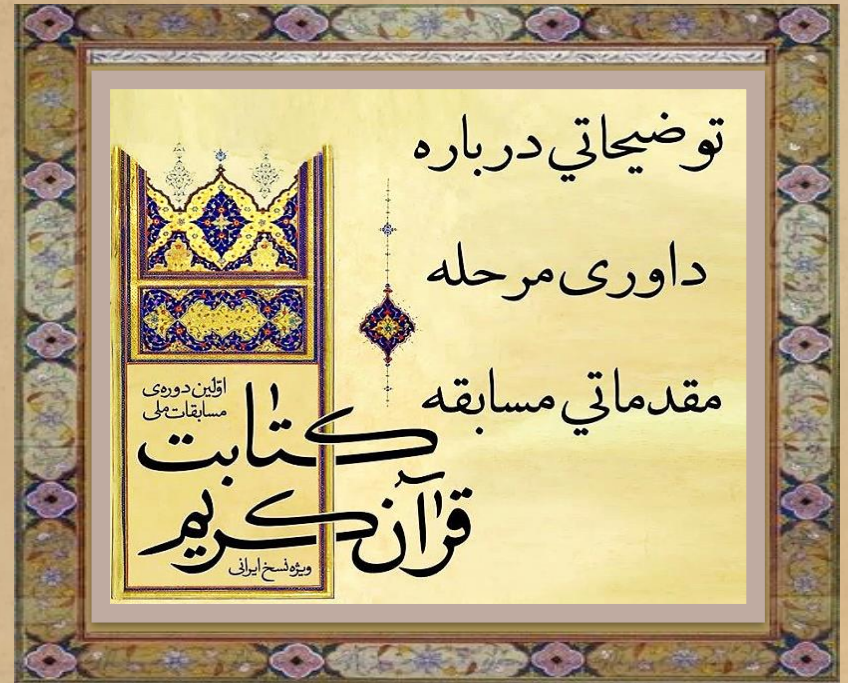 توضيحاتي درباره
داوری مرحله
مقدماتي مسابقه
اوّلین دوره‌ی
مسابقات ملی
کتابت
قرآن کریم
ویژه نسخ ایرانی